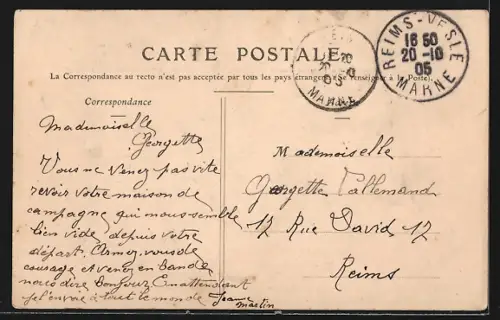 CARTE POSTALE
La Correspondance au recto n'est pas acceptée par tous les pays étrangers (Se renseigner à la Poste).
REIMS-VESLE
16 50
20-10
05
MARNE
MARNE
Correspondance
Mademoiselle
Georgette
Vous ne venez pas vite
revoir votre maison de
campagne qui nous semble
bien vide depuis votre
départ. Armez vous de
courage et venez en bande
nous dire bonjour En attendant
je l'envoie à tout le monde Jeanne
Martin
Mademoiselle
Georgette Lallemand
12 Rue David 12
Reims